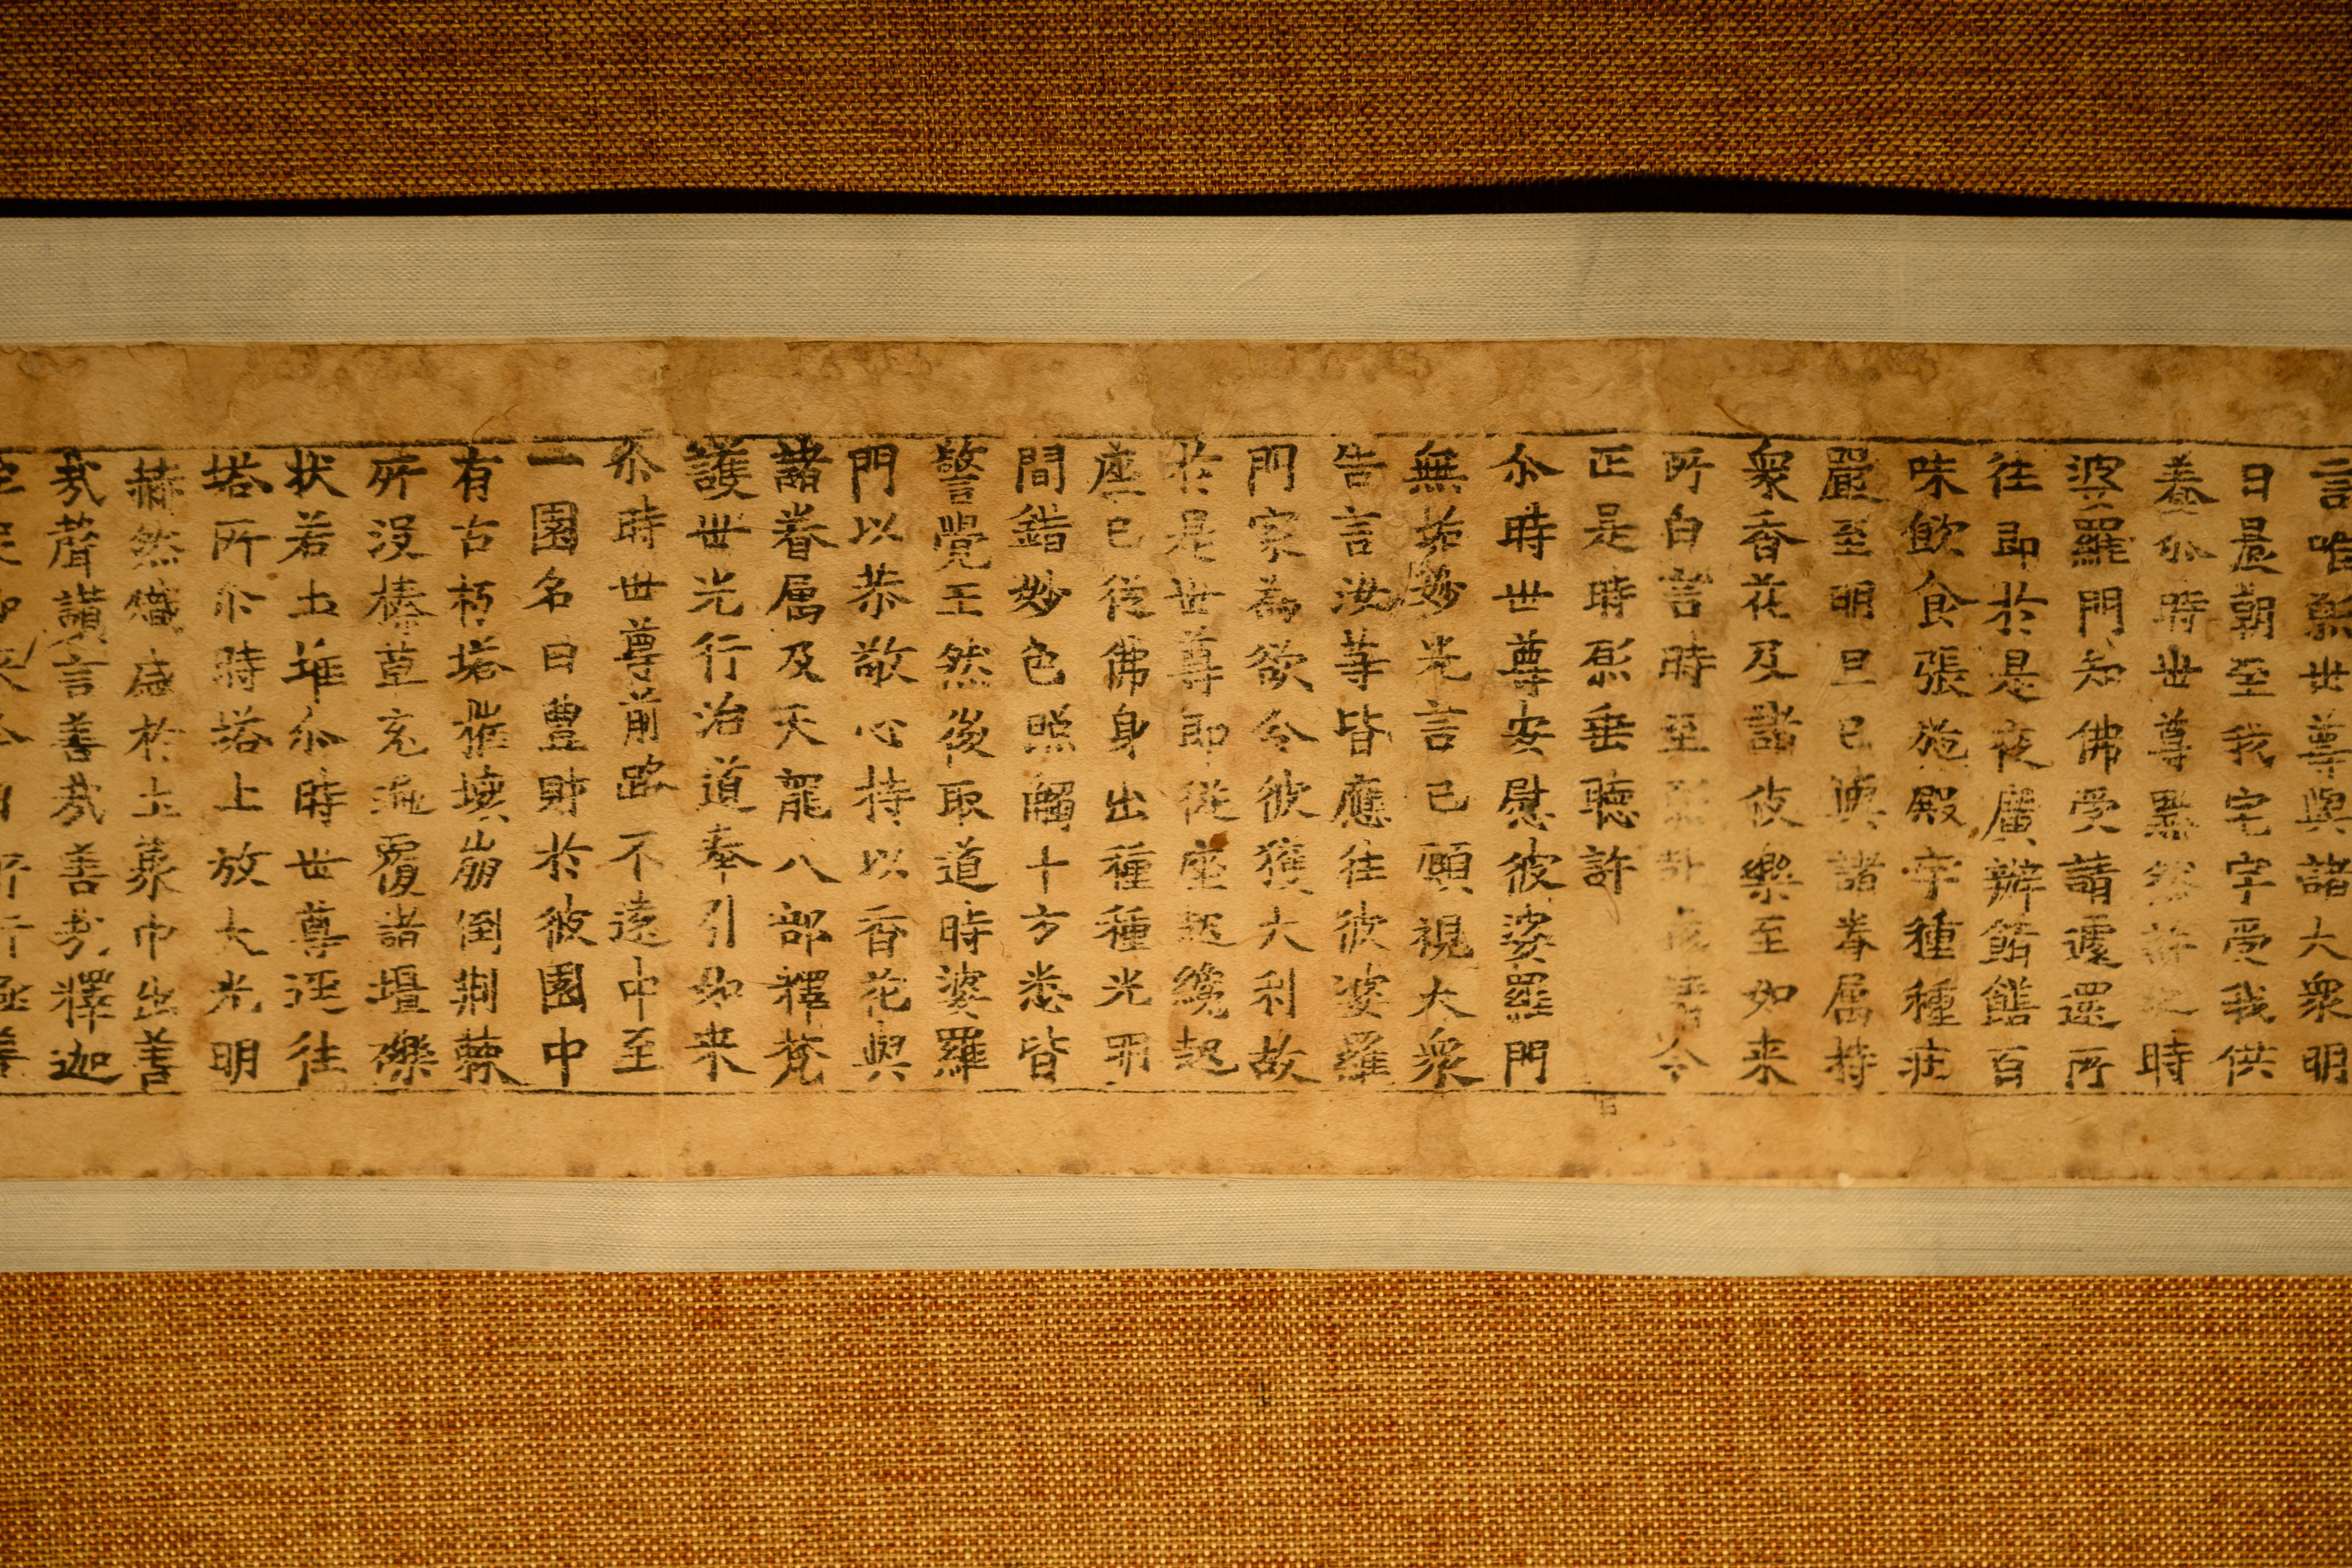 言唯願世尊與諸大衆明
日晨朝至我宅宇受我供
養尒時世尊黙然許之時
婆羅門知佛受請遽還所
住即於是夜廣辦餚饍百
味飲食張施殿宇種種莊
嚴至明旦已與諸眷属持
衆香花及諸伎樂至如来
所白言時至 今
正是時願垂聴許
尒時世尊安慰彼婆羅門
無垢妙光言已顧視大衆
告言汝等皆應往彼婆羅
門家為欲令彼獲大利故
於是世尊即從座起纔起
座已從佛身出種種光明
間錯妙色照觸十方悉皆
警覺王然後取道時婆羅
門以恭敬心持以香花與
諸眷属及天龍八部釋梵
護世先行治道奉引如来
尒時世尊前路不遠中至
一園名曰豊財於彼園中
有古朽塔摧壞崩倒荊棘
所没榛草充遍覆諸壃礫
状若土堆尒時世尊逕往
塔所尒時塔上放大光明
赫然熾盛於土聚中出善
哉聲讃言善哉善哉釋迦